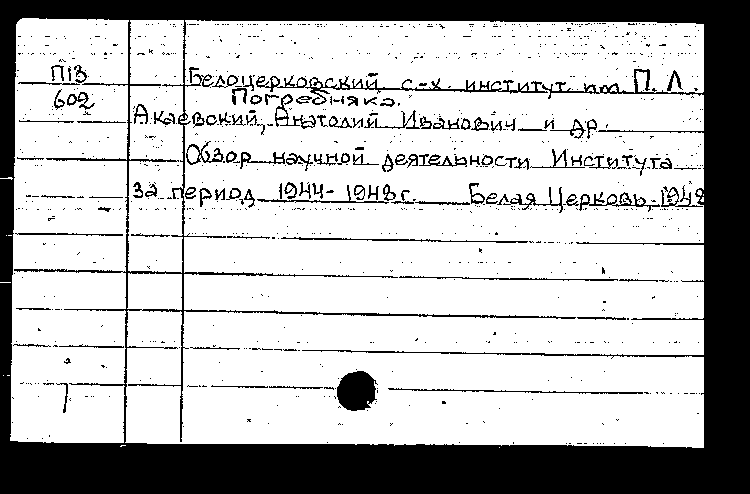 П13
602
Белоцерковский с.-х. институт им. П. Л.
Погребняка.
Акаевский, Анатолий Иванович и др.
Обзор научной деятельности Института
за период 1944-1948 г. Белая Церковь, 1948